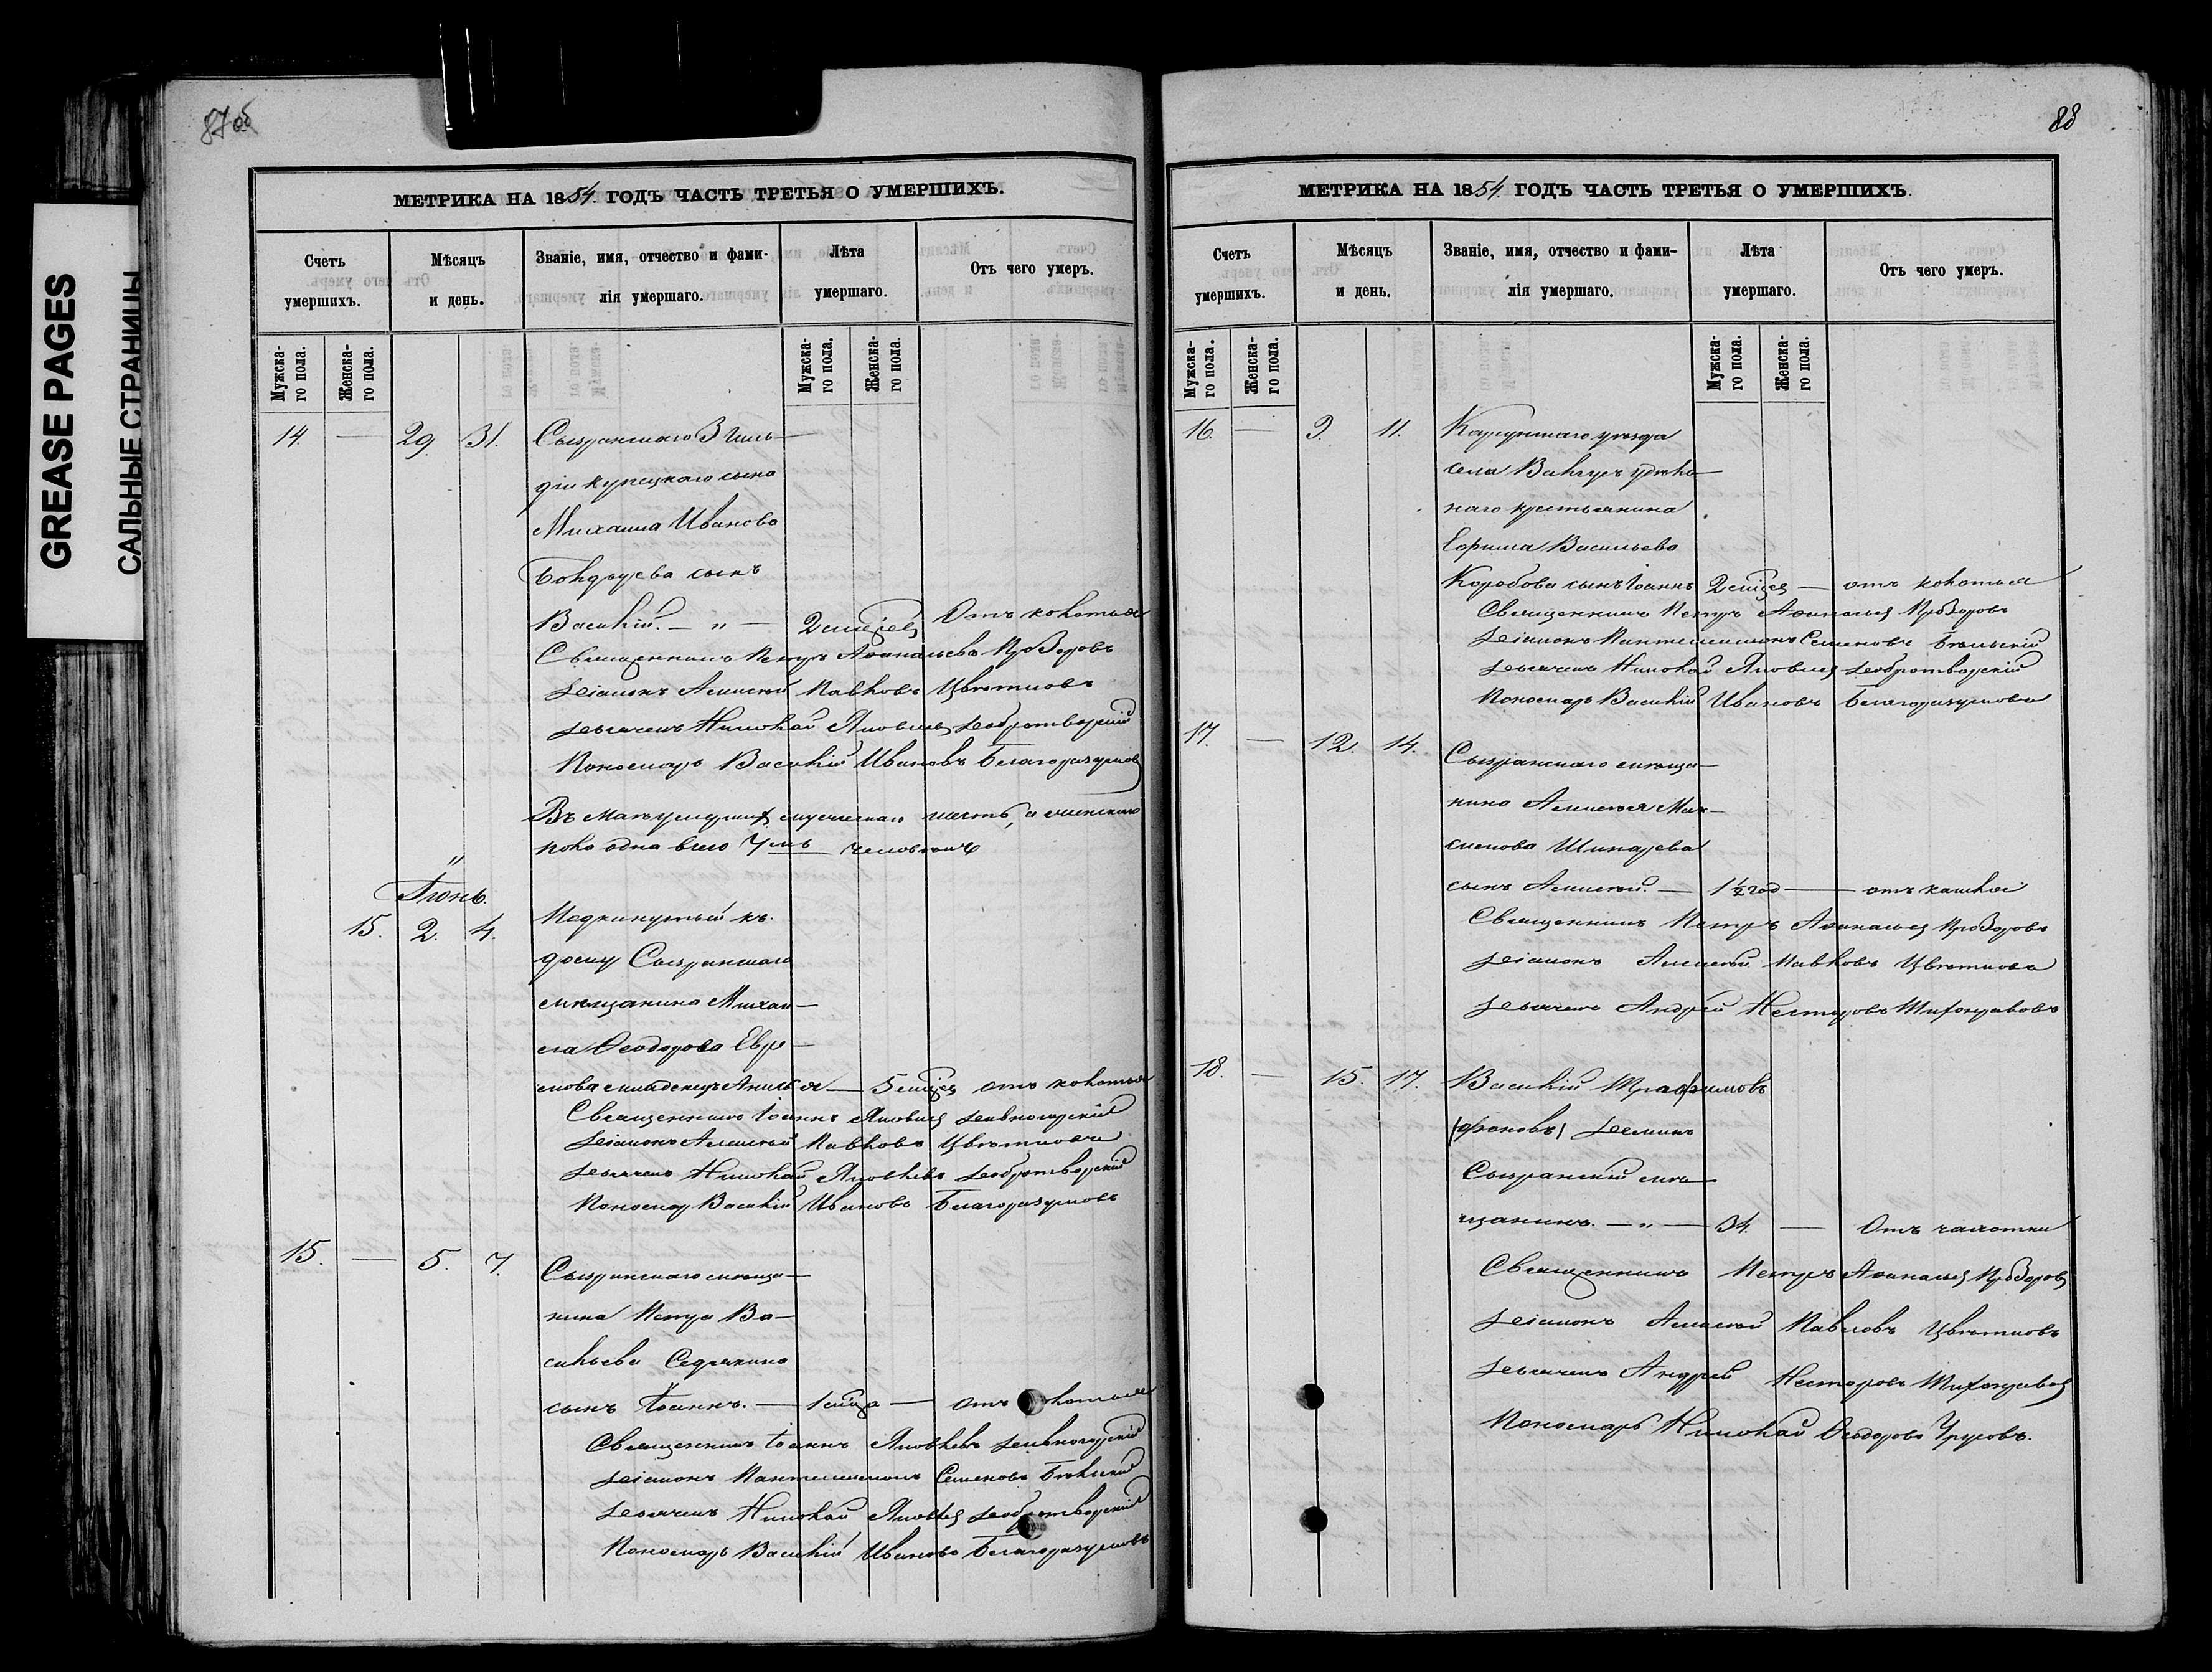 GREASE PAGES
САЛЬНЫЕ СТРАНИЦЫ
87об
МЕТРИКА НА 1854 ГОДЪ ЧАСТЬ ТРЕТЬЯ О УМЕРШИХЪ.
Счетъ умершихъ.
Мѣсяцъ и день.
Званіе, имя, отчество и фами-
лія умершаго.
Лѣта умершаго.
Отъ чего умеръ.
Мужска-
го пола.
Женска-
го пола.
Мужска-
го пола.
Женска-
го пола.
14 — 29. 31. Сызранскаго 3 Гиль-
діи купецкаго сына
Михаила Иванова
сынъ
Василій. — „ — 2 мѣсяц Отъ колотья
Священникъ Петръ Аѳанасьевъ Прозоровъ
Діаконъ Алексѣй Павловъ Цвѣтковъ
Дьячекъ Николай Яковлев Добротворскій
Пономарь Василій Ивановъ Благоразумов
Въ маѣ умерших мужескаго шесть, а женскаго
пола одна всего 7мь человѣкъ
Іюнь.
15. 2. 4. Подкинутый къ
дому Сызранскаго
мѣщанина Михаи-
ла Ѳеодорова Ефре-
мова младенецъ — 5 мѣсяц отъ колотья
Священникъ Іоаннъ Яковлев Дивногорскій
Діаконъ Алексѣй Павловъ Цвѣтковъ
Дьячекъ Николай Яковлевъ Добротворскій
Пономар Василій Ивановъ Благоразумовъ
15. — 5. 7. Сызранскаго мѣща-
нина Петра Ва-
сильева Седякина
сынъ Іоаннъ. — 1 мѣсяца — отъ колотья
Священникъ Іоаннъ Яковлевъ Дивногорскій
Діаконъ Пантелеимонъ Семеновъ Бѣльскій
Дьячекъ Николай Яковлев Добротворскій
Пономарь Василій Ивановъ Благоразумовъ
88
МЕТРИКА НА 1854. ГОДЪ ЧАСТЬ ТРЕТЬЯ О УМЕРШИХЪ.
Счетъ умершихъ.
Мѣсяцъ и день.
Званіе, имя, отчество и фами-
лія умершаго.
Лѣта умершаго.
Отъ чего умеръ.
Мужска-
го пола.
Женска-
го пола.
Мужска-
го пола.
Женска-
го пола.
16. — 9. 11. Карсунскаго уѣзда
села удѣль-
наго крестьянина
Ефима Васильева
Коробова сынъ Іоаннъ 2 мѣсяц — отъ колотья
Священникъ Петръ Аѳанасьев Прозоровъ
Діаконъ Пантелеимонъ Семеновъ Бѣльскій
Дьячекъ Николай Яковлев Добротворскій
Пономарь Василій Ивановъ Благоразумовъ
17. — 12. 14. Сызранскаго мѣща-
нина Алексѣя Мак-
симова
сынъ Алексѣй. — 1½ год — отъ кашля
Священникъ Петръ Аѳанасьев Прозоровъ
Діаконъ Алексѣй Павловъ Цвѣтковъ
Дьячекъ Андрей Несторовъ
18. — 15. 17. Василій Трофимовъ
Деминъ
Сызранскій мѣ-
щанинъ. — „ — 34. — Отъ чахотки
Священникъ Петръ Аѳанасьев Прозоров
Діаконъ Алексѣй Павловъ Цвѣтковъ
Дьячекъ Андрей Несторовъ
Пономарь Николай Ѳеодоровъ Урусовъ.